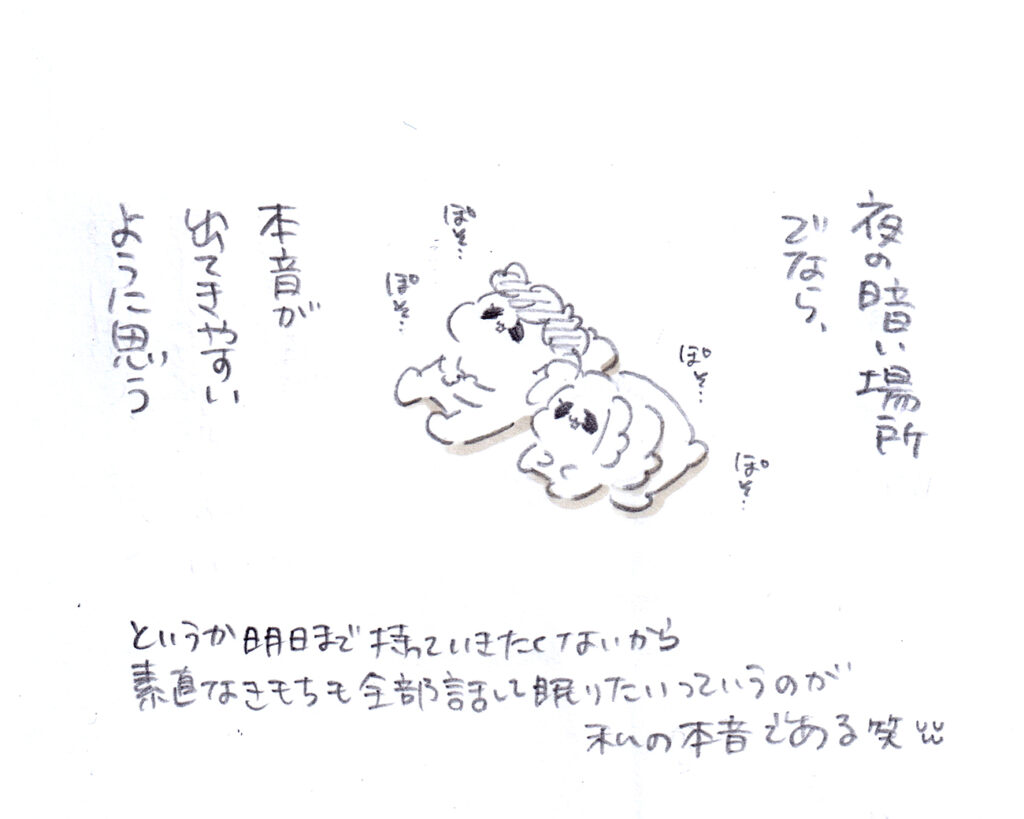 夜の暗い場所
でなら、
ぽそ…
ぽそ…
ぽそ…
ぽそ…
本音が
出てきやすい
ように思う
というか明日まで持っていきたくないから
素直なきもちも全部話して眠りたいっていうのが
私の本音である笑